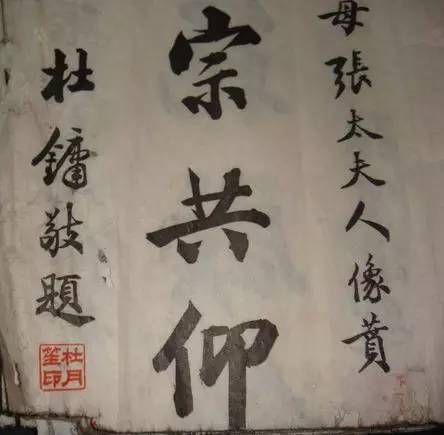 母張太夫人像贊
宗共仰
杜鏞敬題
杜月笙印